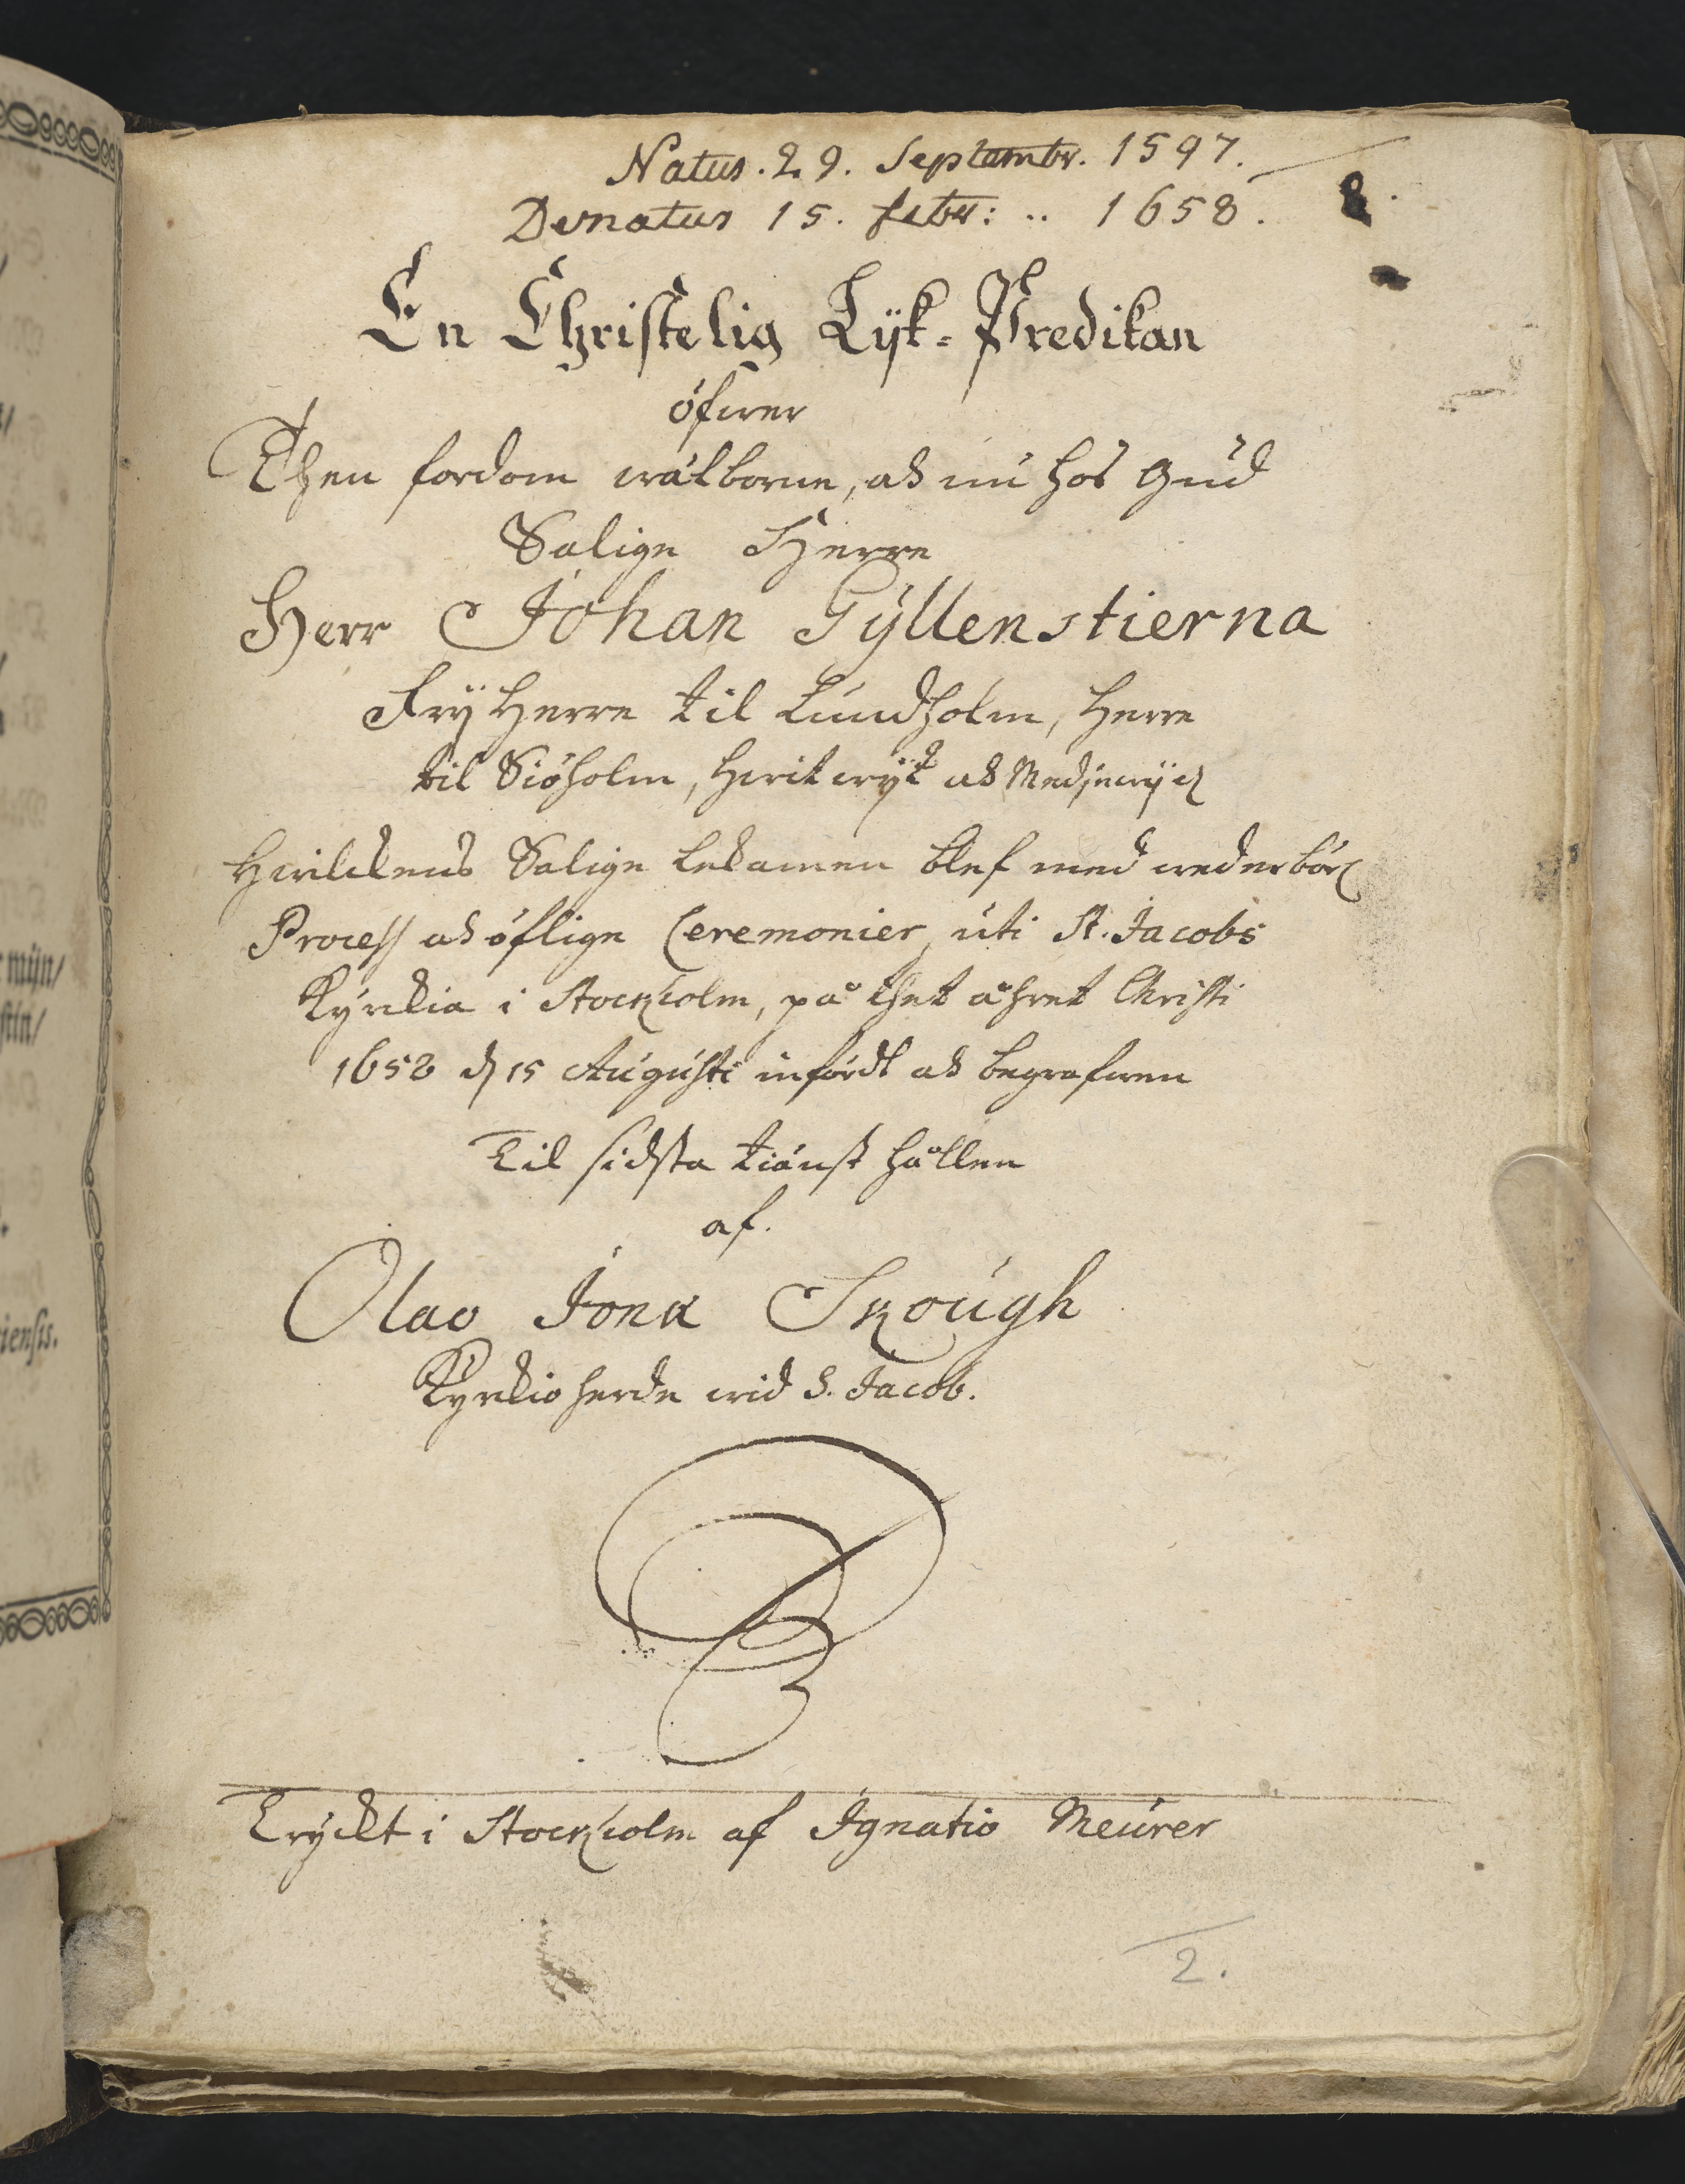 Natus. 29. Septembr. 1597.
Denatus 15. febr: .. 1658.
8.
En Christelig Lijk-Predikan
öfwer
Then fordom wälborne, och nu hos Gud
Salige Herre
Herr Johan Gyllenstierna
Frijherre til Lundholm, Herre
til Siöholm, Hwitwijk och
Hwilckens Salige Lekamen blef med wederbörl
Process och öflige Ceremonier, uti St. Jacobs
Kyrckia i Stockholm, på thet åhret Christi
1658 d 15 Augusti införd och begrafwen
Til sidsta tiänst hållen
af.
Olao Jonæ Skough
Kyrckioherde wid S. Jacob.
Tryckt i Stockholm af Ignatio Meurer
2.
mijn/
stin/
iensis.